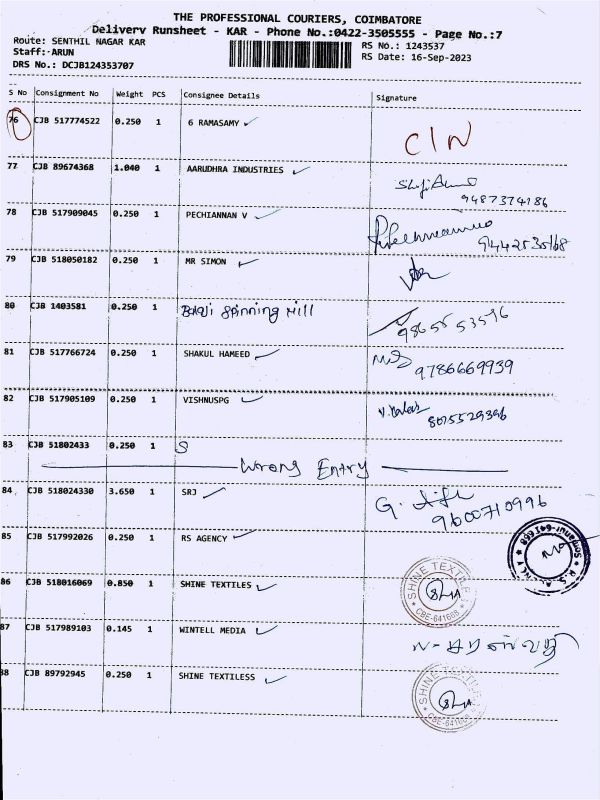 THE PROFESSIONAL COURIERS, COIMBATORE
Delivery Runsheet - KAR - Phone No.:0422-3505555 - Page No.:7
Route: SENTHIL NAGAR KAR
RS No.: 1243537
Staff:-ARUN
RS Date: 16-Sep-2023
DRS No.: DCJB124353707
S No Consignment No Weight PCS Consignee Details Signature
76 CJB 517774522 0.250 1 6 RAMASAMY CIN
77 CJB 89674368 1.040 1 AARUDHRA INDUSTRIES
9487374186
78 CJB 517909045 0.250 1 PECHIANNAN V
9442535168
79 CJB 518050182 0.250 1 MR SIMON
80 CJB 1403581 0.250 1 Balaji Spinning Mill
9865553596
81 CJB 517766724 0.250 1 SHAKUL HAMEED
9786669939
82 CJB 517905109 0.250 1 VISHNUSPG
8075529396
83 CJB 51802433 0.250 1 S
Wrong Entry
84 CJB 518024330 3.650 1 SRJ G.
9600710996
85 CJB 517992026 0.250 1 RS AGENCY
86 CJB 518016069 0.850 1 SHINE TEXTILES
SHINE TEXTILES
CBE-641668
87 CJB 517989103 0.145 1 WINTELL MEDIA
88 CJB 89792945 0.250 1 SHINE TEXTILESS
SHINE TEXTILES
CBE-641668